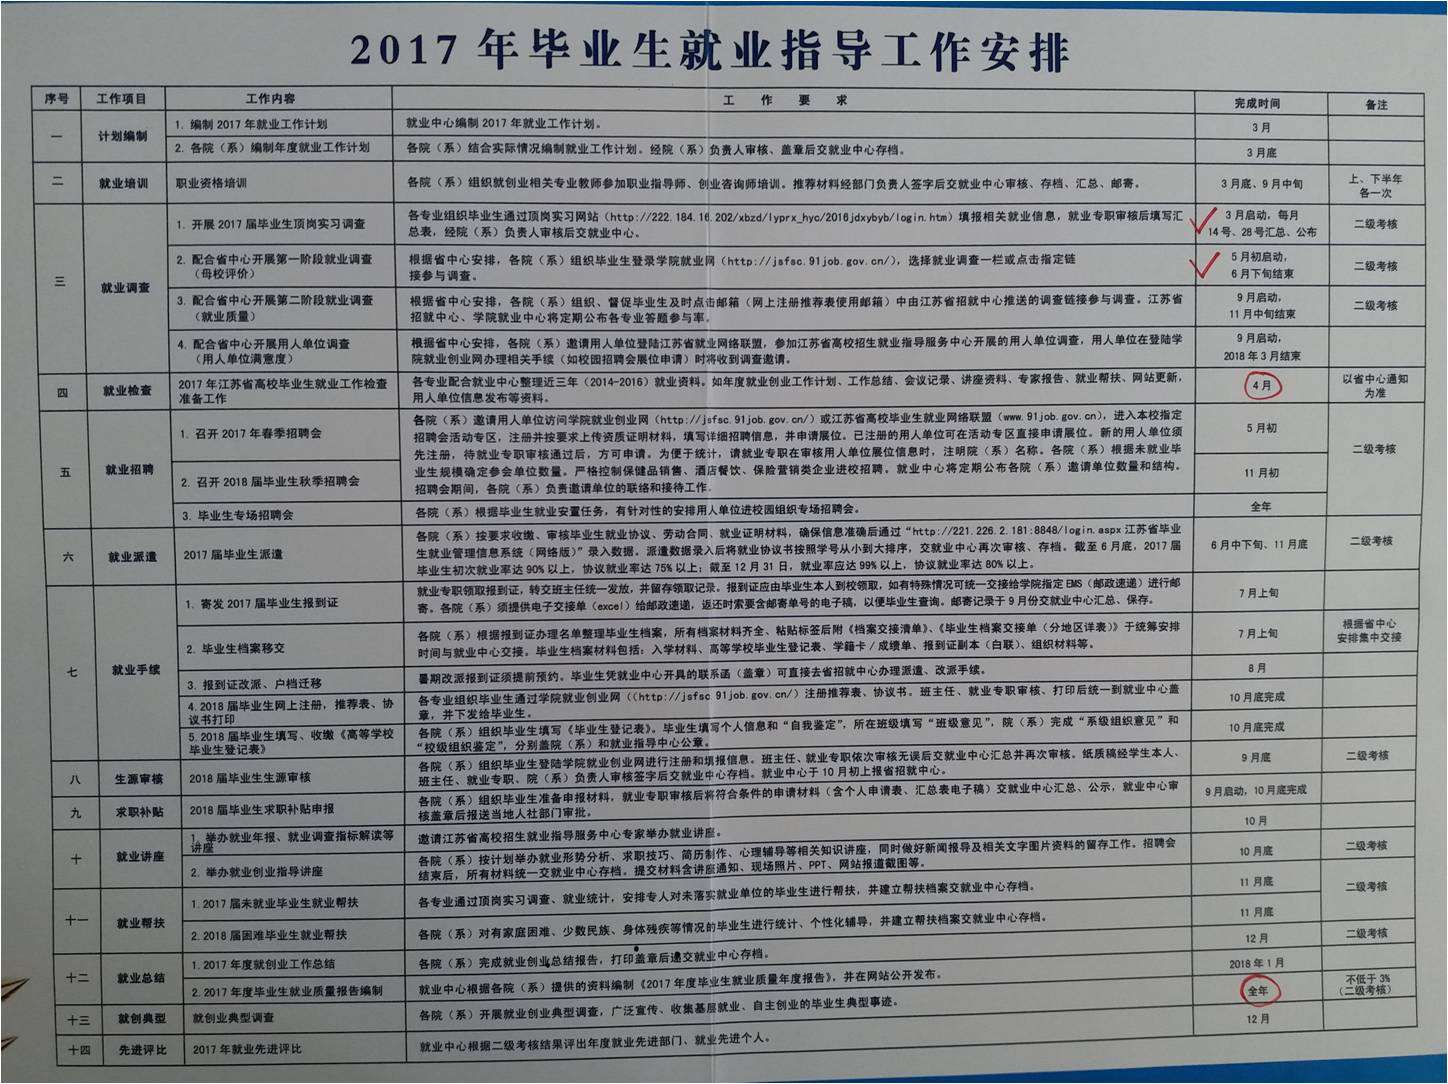 2017 年毕业生就业指导工作安排
序号 工作项目 工作内容 工 作 要 求 完成时间 备注
一 计划编制
1. 编制 2017 年就业工作计划
就业中心编制 2017 年就业工作计划。
3 月
2. 各院（系）编制年度就业工作计划
各院（系）结合实际情况编制就业工作计划。经院（系）负责人审核、盖章后交就业中心存档。
3 月底
二 就业培训
职业资格培训
各院（系）组织就创业相关专业教师参加职业指导师、创业咨询师培训。推荐材料经部门负责人签字后交就业中心审核、存档、汇总、邮寄。
3 月底、9 月中旬
上、下半年
各一次
三 就业调查
1. 开展 2017 届毕业生顶岗实习调查
各专业组织毕业生通过顶岗实习网站（http://222.184.16.202/xbzd/lyprx_hyc/2016jdxybyb/login.htm）填报相关就业信息，就业专职审核后填写汇
总表，经院（系）负责人审核后交就业中心。
3 月启动，每月
14 号、28 号汇总、公布
二级考核
2. 配合省中心开展第一阶段就业调查
（母校评价）
根据省中心安排，各院（系）组织毕业生登录学院就业网（http://jsfsc.91job.gov.cn/），选择就业调查一栏或点击指定链
接参与调查。
5 月初启动，
6 月下旬结束
二级考核
3. 配合省中心开展第二阶段就业调查
（就业质量）
根据省中心安排，各院（系）组织、督促毕业生及时点击邮箱（网上注册推荐表使用邮箱）中由江苏省招就中心推送的调查链接参与调查。江苏省
招就中心、学院就业中心将定期公布各专业答题参与率。
9 月启动，
11 月中旬结束
二级考核
4. 配合省中心开展用人单位调查
（用人单位满意度）
根据省中心安排，各院（系）邀请用人单位登陆江苏省就业网络联盟，参加江苏省高校招生就业指导服务中心开展的用人单位调查，用人单位在登陆学
院就业创业网办理相关手续（如校园招聘会展位申请）时将收到调查邀请。
9 月启动，
2018 年 3 月结束
四 就业检查
2017 年江苏省高校毕业生就业工作检查
准备工作
各专业配合就业中心整理近三年（2014-2016）就业资料。如年度就业创业工作计划、工作总结、会议记录、讲座资料、专家报告、就业帮扶、网站更新，
用人单位信息发布等资料。
4 月
以省中心通知
为准
五 就业招聘
1. 召开 2017 年春季招聘会
各院（系）邀请用人单位访问学院就业创业网（http://jsfsc.91job.gov.cn/）或江苏省高校毕业生就业网络联盟（www.91job.gov.cn），进入本校指定
招聘会活动专区，注册并按要求上传资质证明材料，填写详细招聘信息，并申请展位。已注册的用人单位可在活动专区直接申请展位。新的用人单位须
先注册，待就业专职审核通过后，方可申请。为便于统计，请就业专职在审核用人单位展位信息时，注明院（系）名称。各院（系）根据未就业毕
业生规模确定参会单位数量。严格控制保健品销售、酒店餐饮、保险营销类企业进校招聘。就业中心将定期公布各院（系）邀请单位数量和结构。
招聘会期间，各院（系）负责邀请单位的联络和接待工作。
5 月初
二级考核
2. 召开 2018 届毕业生秋季招聘会
11 月初
3. 毕业生专场招聘会
各院（系）根据毕业生就业安置任务，有针对性的安排用人单位进校园组织专场招聘会。
全年
六 就业派遣
2017 届毕业生派遣
各院（系）按要求收缴、审核毕业生就业协议、劳动合同、就业证明材料，确保信息准确后通过“http://221.226.2.181:8848/login.aspx 江苏省毕业
生就业管理信息系统（网络版）”录入数据。派遣数据录入后将就业协议书按照学号从小到大排序，交就业中心再次审核、存档。截至 6 月底，2017 届
毕业生初次就业率达 90% 以上，协议就业率达 75% 以上；截至 12 月 31 日，就业率应达 99% 以上，协议就业率达 80% 以上。
6 月中下旬、11 月底
二级考核
七 就业手续
1. 寄发 2017 届毕业生报到证
就业专职领取报到证，转交班主任统一发放，并留存领取记录。报到证应由毕业生本人到校领取，如有特殊情况可统一交接给学院指定 EMS（邮政速递）进行邮
寄。各院（系）须提供电子交接单（excel）给邮政速递，返还时索要含邮寄单号的电子稿，以便毕业生查询。邮寄记录于 9 月份交就业中心汇总、保存。
7 月上旬
2. 毕业生档案移交
各院（系）根据报到证办理名单整理毕业生档案，所有档案材料齐全、粘贴标签后附《档案交接清单》、《毕业生档案交接单（分地区详表）》于统筹安排
时间与就业中心交接。毕业生档案材料包括：入学材料、高等学校毕业生登记表、学籍卡/成绩单、报到证副本（白联）、组织材料等。
7 月上旬
根据省中心
安排集中交接
3. 报到证改派、户档迁移
暑期改派报到证须提前预约。毕业生凭就业中心开具的联系函（盖章）可直接去省招就中心办理派遣、改派手续。
8 月
4. 2018 届毕业生网上注册，推荐表、协
议书打印
各专业组织毕业生通过学院就业创业网（(http://jsfsc.91job.gov.cn/）注册推荐表、协议书。班主任、就业专职审核、打印后统一到就业中心盖
章，并下发给毕业生。
10 月底完成
5. 2018 届毕业生填写、收缴《高等学校
毕业生登记表》
各院（系）组织毕业生填写《毕业生登记表》。毕业生填写个人信息和“自我鉴定”，所在班级填写“班级意见”，院（系）完成“系级组织意见”和
“校级组织鉴定”，分别盖院（系）和就业指导中心公章。
10 月底完成
八 生源审核
2018 届毕业生生源审核
各院（系）组织毕业生登陆学院就业创业网进行注册和填报信息。班主任、就业专职依次审核无误后交就业中心汇总并再次审核。纸质稿经学生本人、
班主任、就业专职、院（系）负责人审核签字后交就业中心存档。就业中心于 10 月初上报省招就中心。
9 月底
二级考核
九 求职补贴
2018 届毕业生求职补贴申报
各院（系）组织毕业生准备申报材料，就业专职审核后将符合条件的申请材料（含个人申请表、汇总表电子稿）交就业中心汇总、公示，就业中心审
核盖章后报送当地人社部门审批。
9 月启动，10 月底完成
十 就业讲座
1. 举办就业年报、就业调查指标解读等
讲座
邀请江苏省高校招生就业指导服务中心专家举办就业讲座。
10 月
2. 举办就业创业指导讲座
各院（系）按计划举办就业形势分析、求职技巧、简历制作、心理辅导等相关知识讲座，同时做好新闻报导及相关文字图片资料的留存工作。招聘会
结束后，所有材料统一交就业中心存档。提交材料含讲座通知、现场照片、PPT、网站报道截图等。
10 月底
二级考核
十一 就业帮扶
1. 2017 届未就业毕业生就业帮扶
各专业通过顶岗实习调查、就业统计，安排专人对未落实就业单位的毕业生进行帮扶，并建立帮扶档案交就业中心存档。
11 月底
二级考核
2. 2018 届困难毕业生就业帮扶
各院（系）对有家庭困难、少数民族、身体残疾等情况的毕业生进行统计、个性化辅导，并建立帮扶档案交就业中心存档。
11 月底
十二 就业总结
1. 2017 年度就创业工作总结
各院（系）完成就业创业总结报告，打印盖章后递交就业中心存档。
12 月
二级考核
2. 2017 年度毕业生就业质量报告编制
就业中心根据各院（系）提供的资料编制《2017 年度毕业生就业质量年度报告》，并在网站公开发布。
2018 年 1 月
十三 就创典型
就创业典型调查
各院（系）开展就业创业典型调查，广泛宣传、收集基层就业、自主创业的毕业生典型事迹。
全年
不低于 3%
（二级考核）
十四 先进评比
2017 年就业先进评比
就业中心根据二级考核结果评出年度就业先进部门、就业先进个人。
12 月